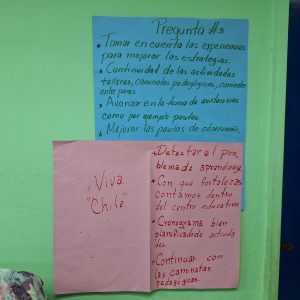 Pregunta #3
• Tomar en cuenta las experiencias
para mejorar las estrategias.
• Continuidad de las actividades
talleres, caminatas pedagógicas, caminatas
entre pares.
• Avanzar en la toma de
como por ejemplo pautas.
• Mejorar las pautas de observación.
"Viva
Chile"
• Detectar el pro
blema de aprendizaje
• Con que fortalezas
contamos dentro
del centro educativo
• Cronograma bien
planificado de activida
des.
• Continuar con
las caminatas
pedagógicas.